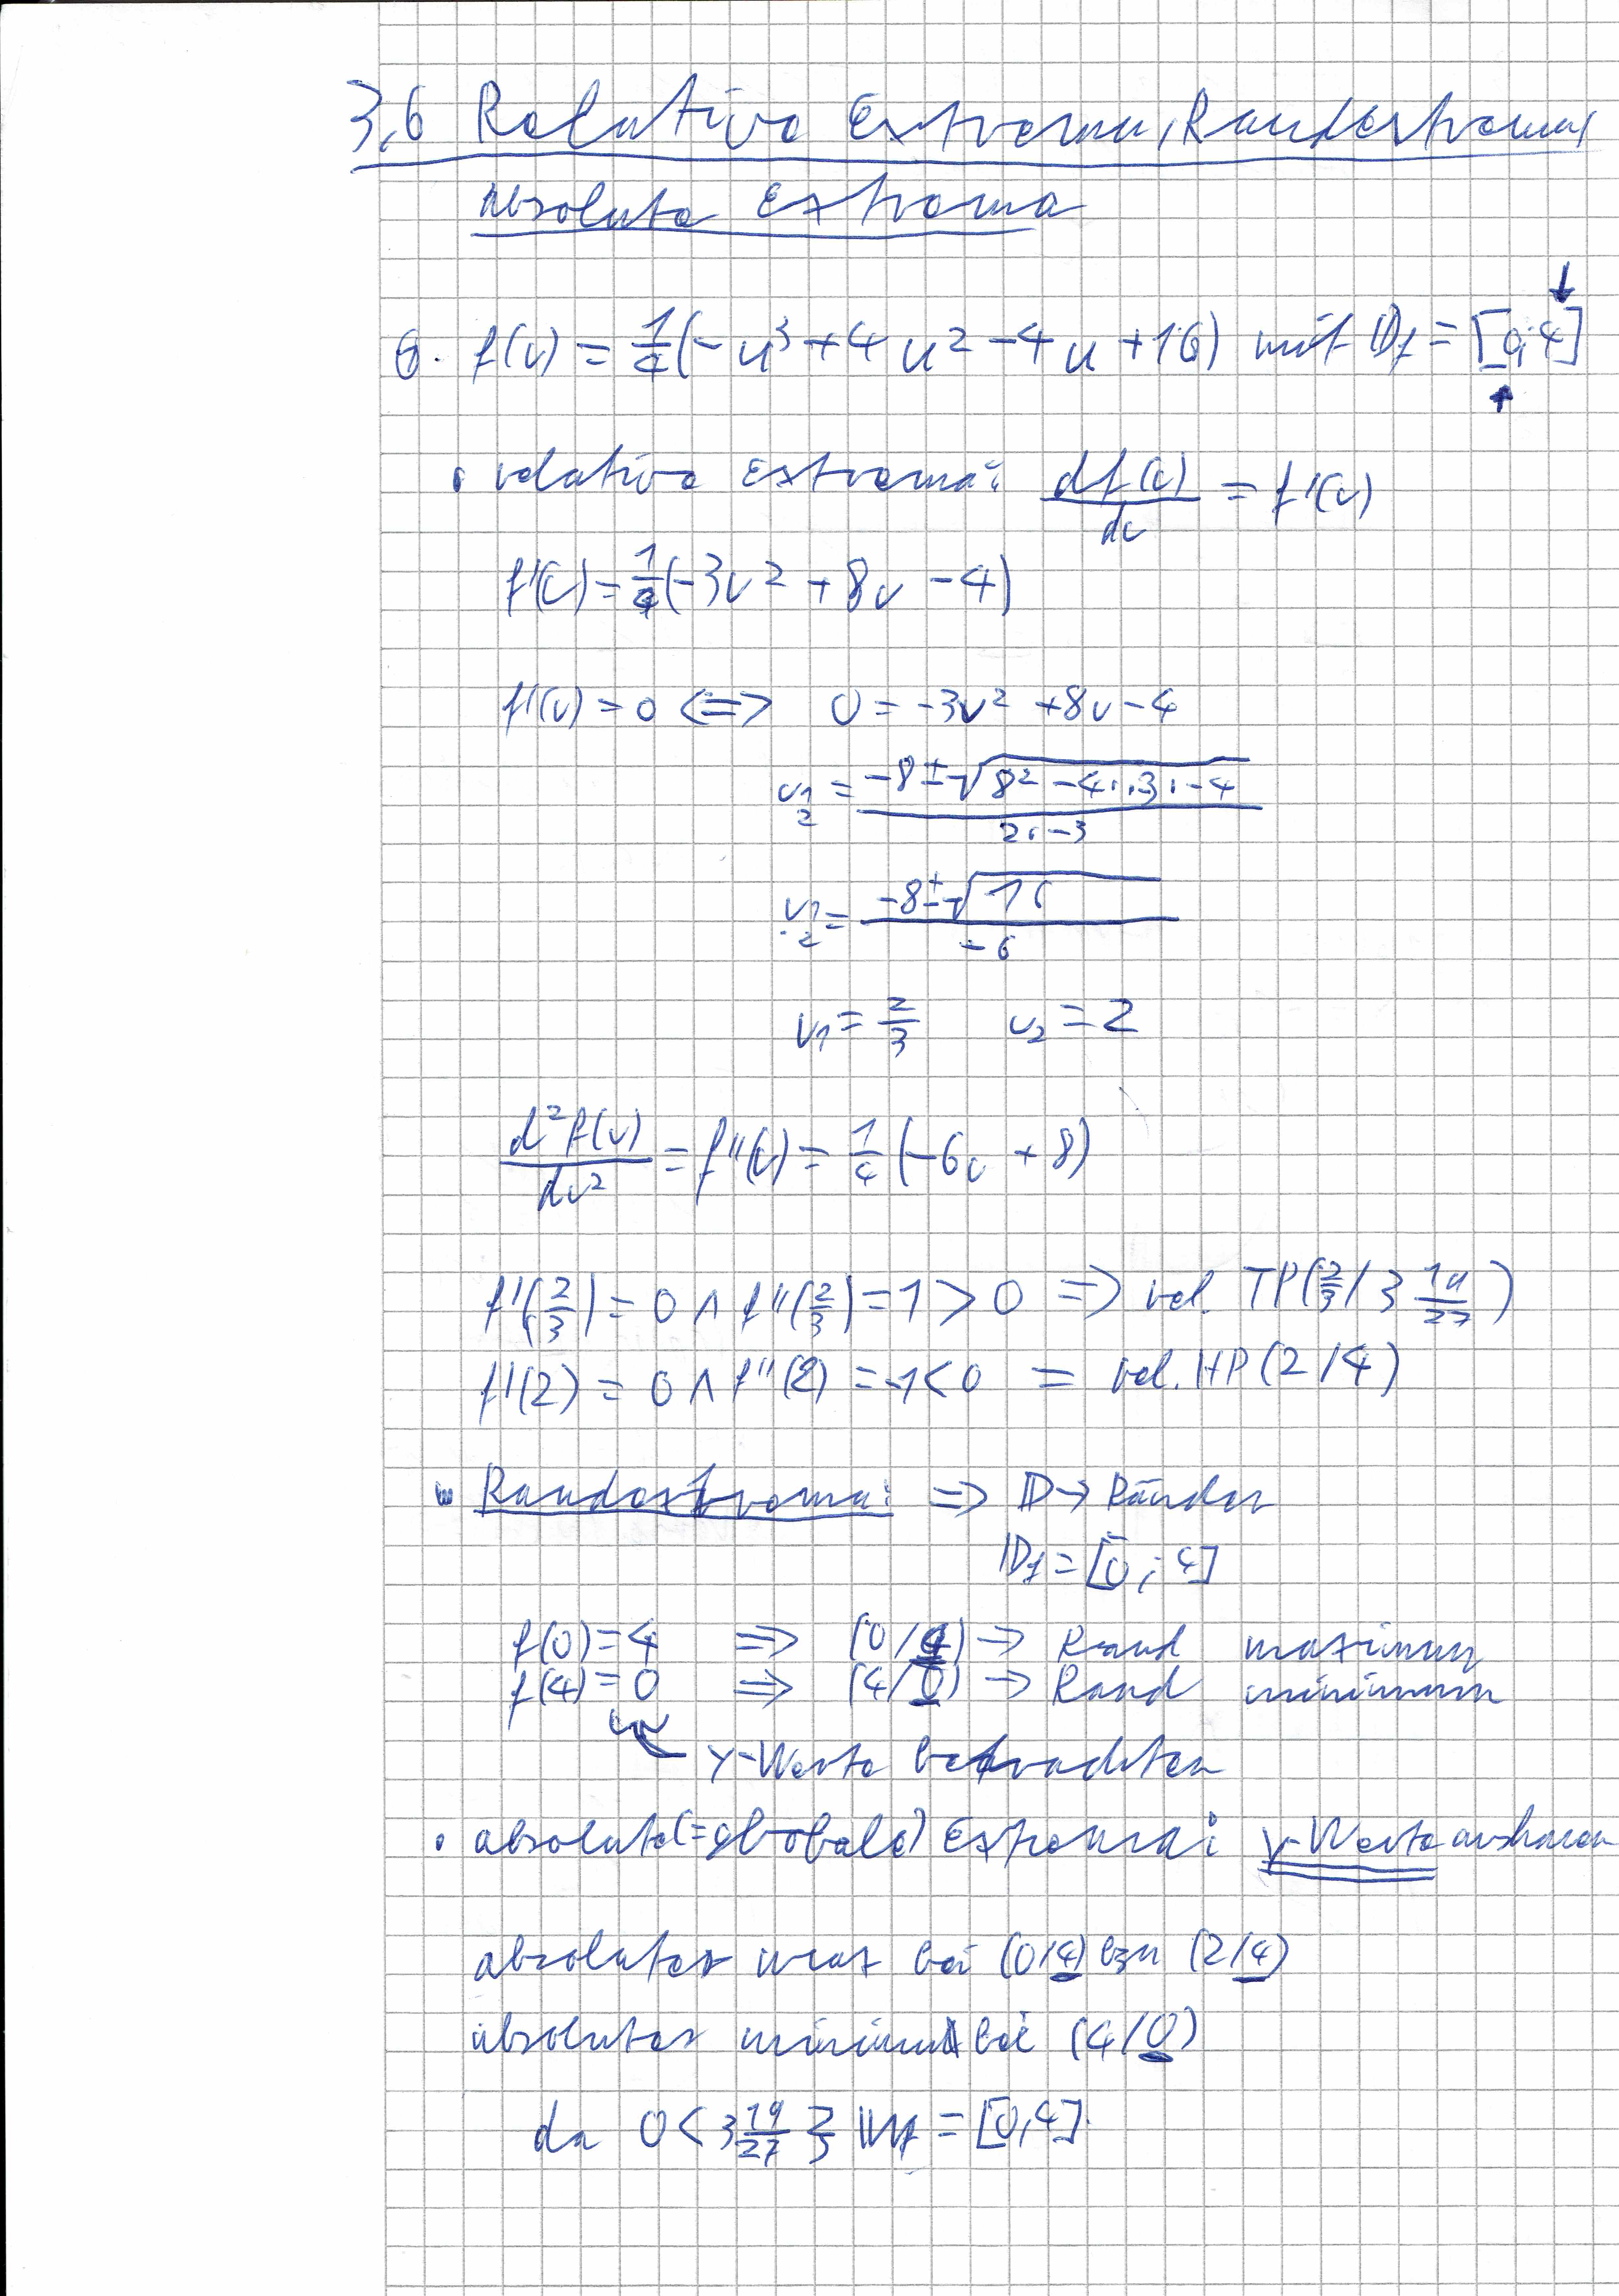 3.6 Relative Extrema, Randextrema,
absolute Extrema
6. f(u) = 1/4(-u³ + 4u² - 4u + 16) mit Df = [0; 4]
• relative Extrema: df(u)/du = f'(u)
f'(u) = 1/4(-3u² + 8u - 4)
f'(u) = 0 <=> 0 = -3u² + 8u - 4
u1/2 = (-8 ± √(8² - 4·-3·-4))/(2·-3)
u1/2 = (-8 ± √16)/-6
u1 = 2/3 u2 = 2
d²f(u)/du² = f''(u) = 1/4(-6u + 8)
f'(2/3) = 0 ∧ f''(2/3) = 1 > 0 => rel. TP(2/3 / 3 19/27)
f'(2) = 0 ∧ f''(2) = -1 < 0 = rel. HP(2/4)
• Randextrema: => D → Ränder
Df = [0; 4]
f(0) = 4 => (0/4) → Rand maximum
f(4) = 0 => (4/0) → Rand minimum
y-Werte betrachten
• absolute (= globale) Extrema: y-Werte anschauen
absolutes max bei (0/4) bzw (2/4)
absolutes minimum bei (4/0)
da 0 < 3 19/27 Wf = [0; 4]